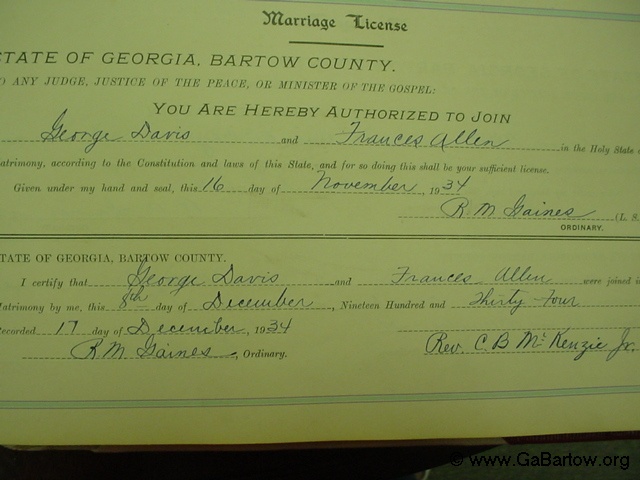 Marriage License
STATE OF GEORGIA, BARTOW COUNTY.
TO ANY JUDGE, JUSTICE OF THE PEACE, OR MINISTER OF THE GOSPEL:
YOU ARE HEREBY AUTHORIZED TO JOIN
George Davis and Frances Allen in the Holy State
Matrimony, according to the Constitution and laws of this State, and for so doing this shall be your sufficient license.
Given under my hand and seal, this 16 day of November, 1934
R M Gaines (L. S.
ORDINARY.
STATE OF GEORGIA, BARTOW COUNTY.
I certify that George Davis and Frances Allen were joined i
Matrimony by me, this 8th day of December, Nineteen Hundred and Thirty Four
Recorded 17 day of December, 1934
R M Gaines, Ordinary.
Rev. C. B McKenzie Jr.
© www.GaBartow.org